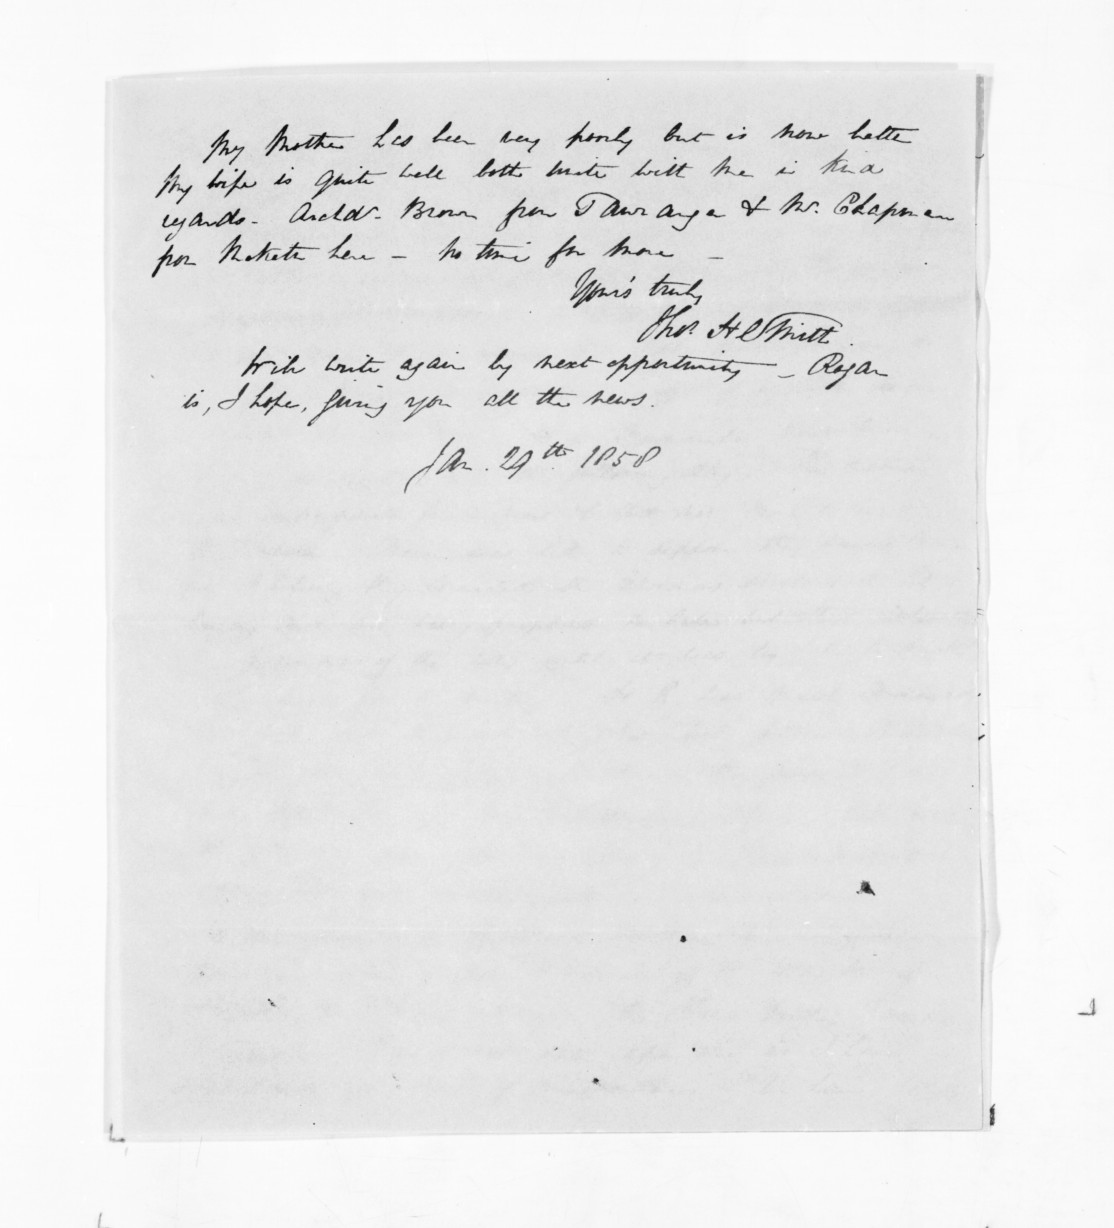 My Mother has been very poorly but is now better
My wife is quite well both unite with me in kind
regards - Archdn. Brown from Tauranga & Mr. Chapman
from Maketu here - No time for more -
Yours truly
Thos. H Smith.
Will write again by next opportunity - Rogan
is, I hope, giving you all the news.
Jan. 29th. 1858